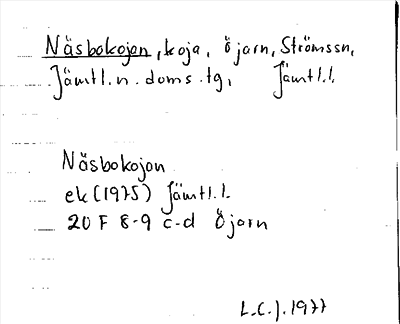 Näsbokojan, koja, Öjarn, Strömssn,
Jämtl. n. doms. tg, Jämtl. l.
Näsbokojan
ek (1975) Jämtl. l.
20 F 8-9 c-d Öjarn
L.C.J. 1977